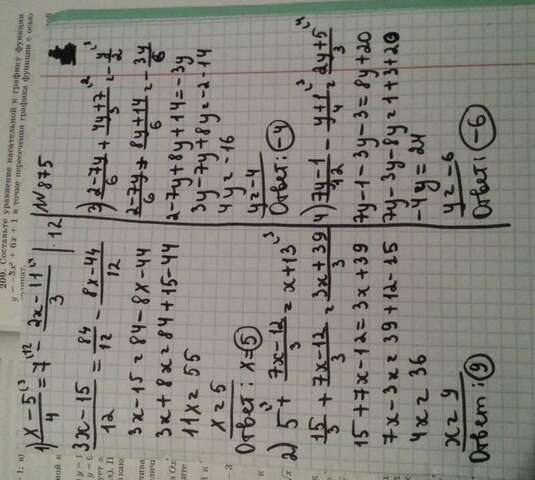 209. Составьте уравнение касательной к графику функции
y = -3x² + 6x + 1 в точке пересечения графика функции с осью
1) (x-5)/4 ^(3 = 7 ^(12 - (2x-11)/3 ^(4 | · 12
(3x-15)/12 = 84/12 - (8x-44)/12
3x-15=84-8x-44
3x+8x=84+15-44
11x=55
x=5
Ответ: x=5
2) 5 ^(3 + (7x-12)/3 = x+13 ^(3
15/3 + (7x-12)/3 = (3x+39)/3
15+7x-12=3x+39
7x-3x=39+12-15
4x=36
x=9
Ответ: 9
№875
3) (2-7y)/6 + (4y+7)/3 ^(2 = -y/2 ^(3
(2-7y)/6 + (8y+14)/6 = -3y/6
2-7y+8y+14=-3y
3y-7y+8y=-2-14
4y=-16
y=-4
Ответ: -4
4) (7y-1)/12 - (y+1)/4 ^(3 = (2y+5)/3 ^(4
7y-1-3y-3=8y+20
7y-3y-8y=1+3+20
-4y=24
y=-6
Ответ: -6